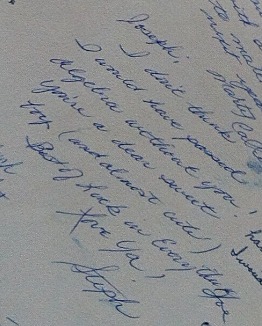 Joseph,
I don't think
I would have passed
Algebra without you.
You're a dear sweet
boy (and almost cute!)
Best of luck in everything Joe
Love Ya,
Steph
to ma